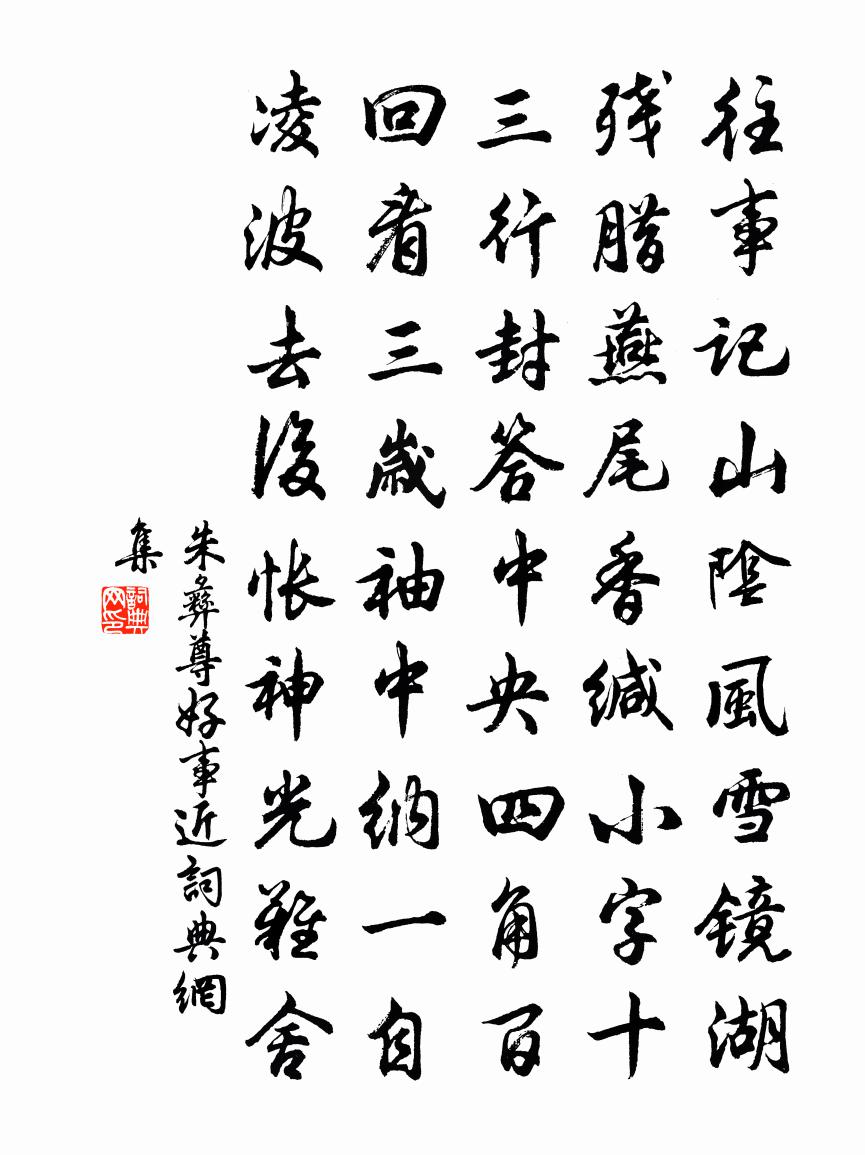 往事记山陰風雪镜湖
残腊燕尾香缄小字十
三行封答中央四角百
回看三歲袖中纳一自
凌波去後怅神光難舍
朱彝尊好事近詞典網
集
詞典网印